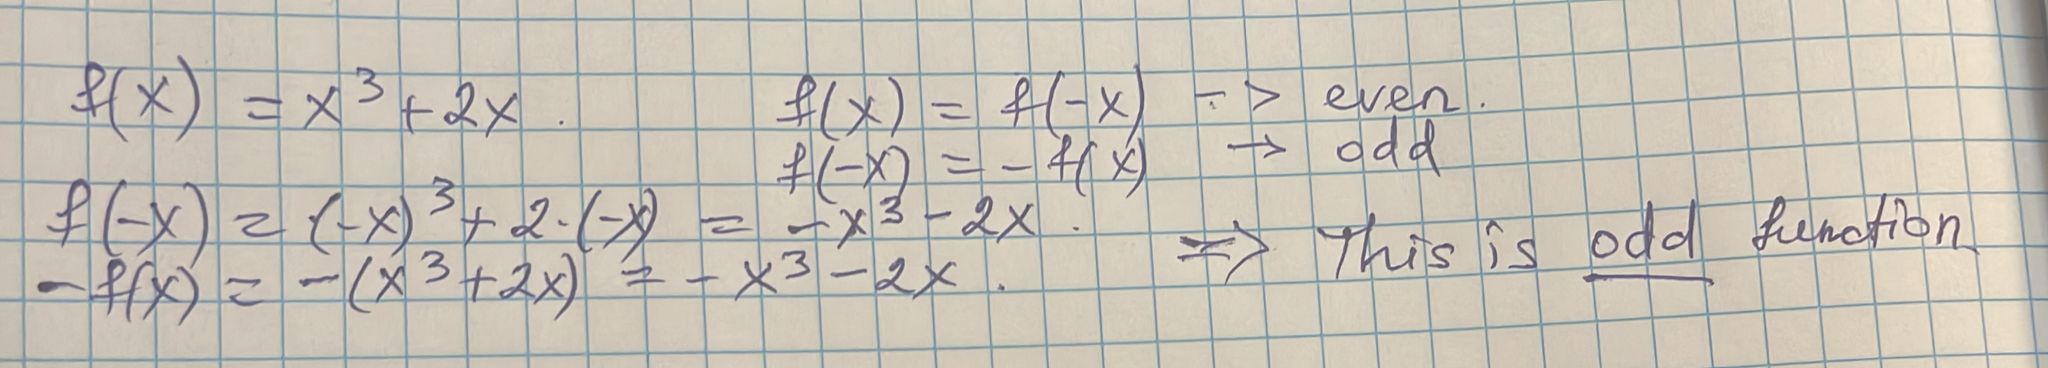 f(x) = x³ + 2x. f(x) = f(-x) -> even.
f(-x) = -f(x) → odd
f(-x) = (-x)³ + 2·(-x) = -x³ - 2x.
-f(x) = -(x³ + 2x) = -x³ - 2x. => This is odd function